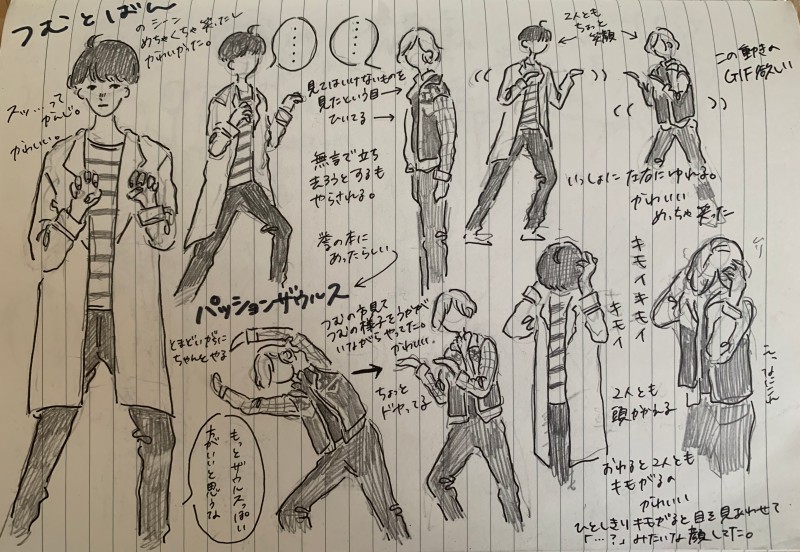 つむとばん
のシーン
めちゃくちゃ笑ったし
かわいかった。
スッ…って
かんじ。
かわいい。
……
……
見てはいけないものを
見たという目
ひいてる
無言で立ち
去ろうとするも
やらされる。
誉の本に
あったらしい
2人とも
ちょっと
笑顔
この動きの
GIF欲しい
いっしょに左右にゆれる。
かわいい
めっちゃ笑った
パッションザウルス
とまどいがちに
ちゃんとやる
つむの方見て
つむの様子をうかが
いながらやってた。
かわいい。
ちょっと
ドヤってる
もっとザウルスっぽい
方がいいと思うな
キモイキモイ
キモイ
2人とも
頭かかえる
え、なにこれ
おわると2人とも
キモがるの
かわいい
ひとしきりキモがると目を見あわせて
「…?」みたいな顔してた。